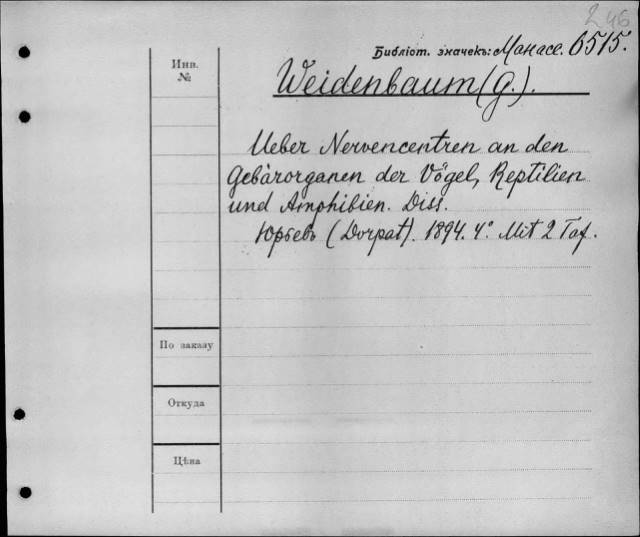 246
Библіот. значекъ: Манасс. 6515.
Инв.
№
Weidenbaum (G.).
Ueber Nervencentren an den
Gebärorganen der Vögel, Reptilien
und Amphibien. Diss.
Юрьевъ (Dorpat). 1894. 4° Mit 2 Taf.
По заказу
Откуда
Цѣна